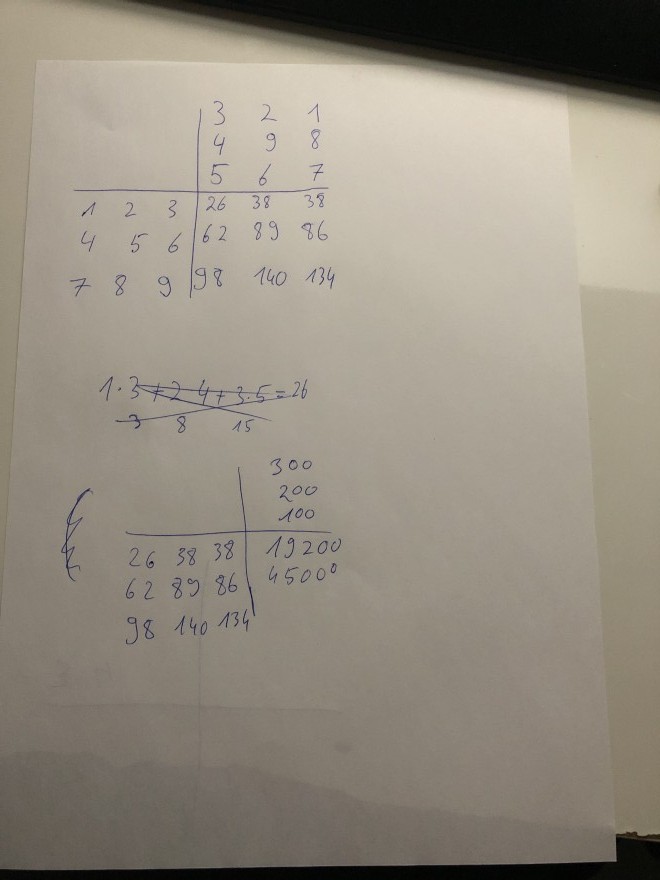 3 2 1
4 9 8
5 6 7
1 2 3 26 38 38
4 5 6 62 89 86
7 8 9 98 140 134
1·3+2 4+3·5=26
3 8 15
300
200
100
26 38 38 19200
62 89 86 45000
98 140 134